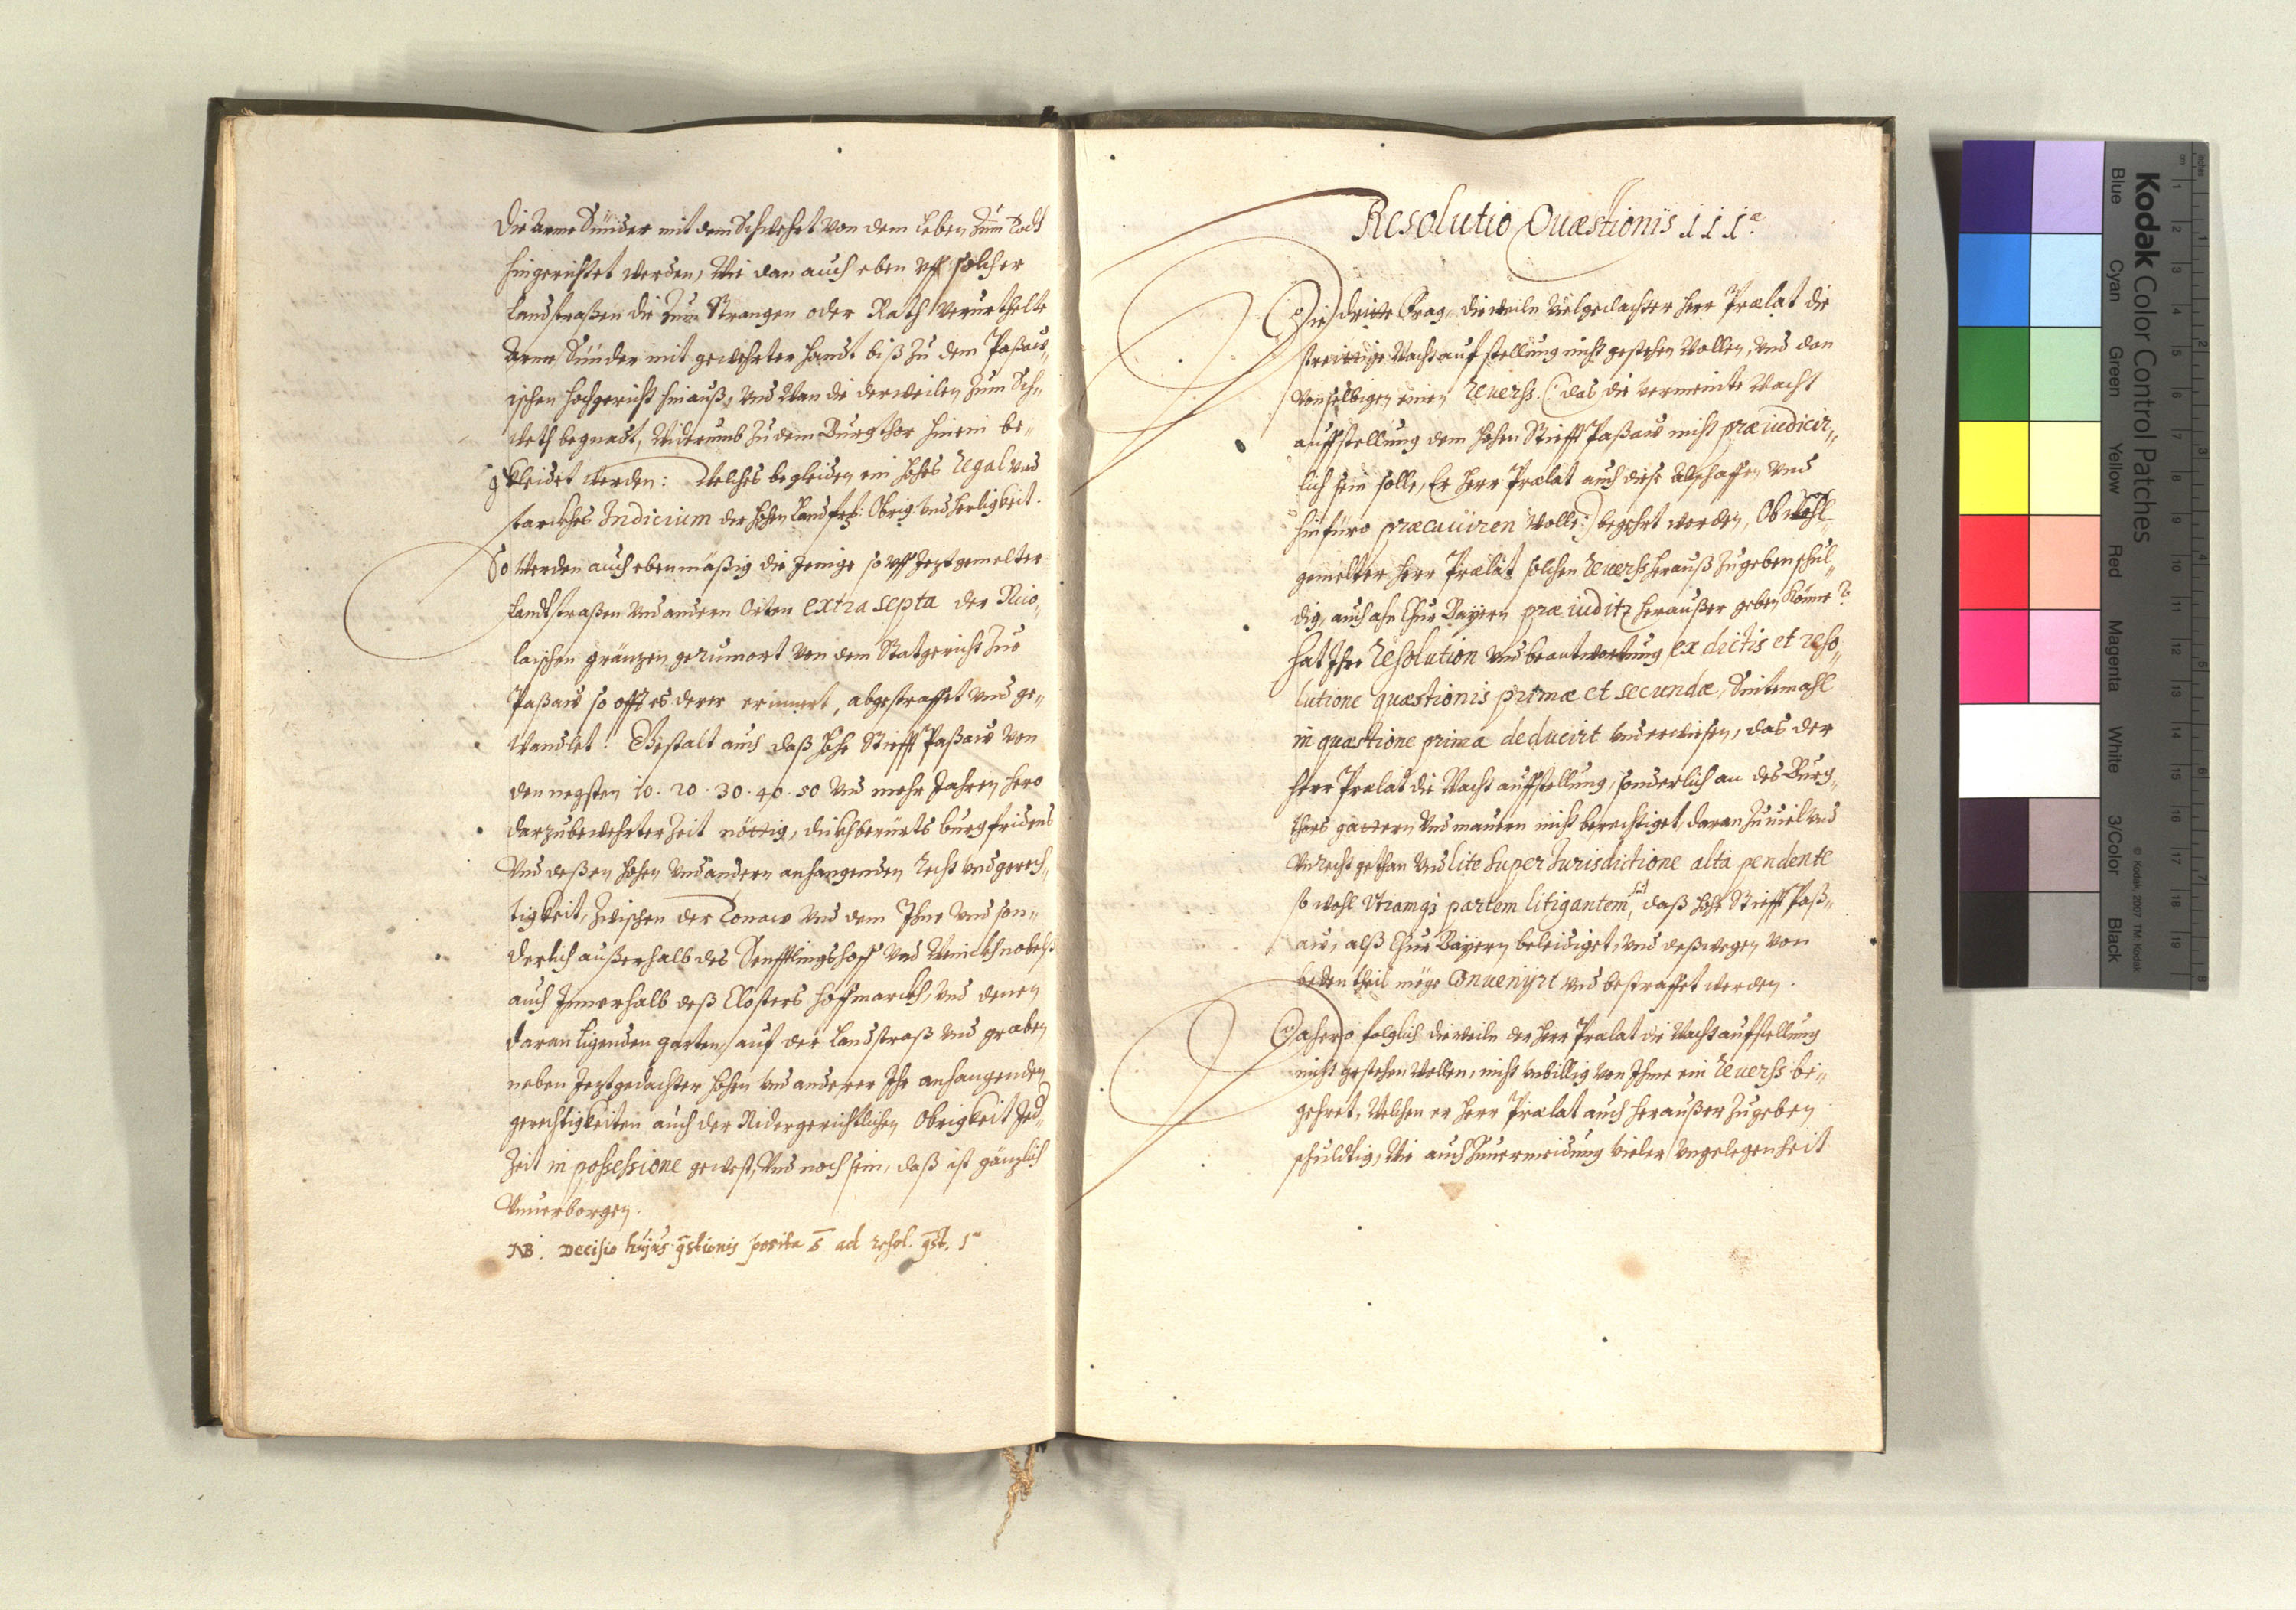 die arme Sünder mit dem Schwehrt von dem Leben zum Todt
hingerichtet werden, Wie dan auch eben uff solcher
Landstraßen die zum Strangen oder Rath verurthelte
arme Sünder mit gewehrter handt biß zu dem Paßaw„
ischen hochgericht hinauß, und Wan die derweilen zum Sch„
werth begnadt, Widerumb zu dem Burgthor hinein be„
gkleidet werden: Welches begleiden ein hohes Regal und
starckhes Indicium der hohen Landsfrst: Obrig: und herligkeit.
So werden auch ebenmäßig die Jenige so uff Jeztgemelter
Landtstraßen und andern Orten extra septa der Nico„
laischen gränzen gerumort von dem Statgericht zue
Paßaw so offt es derer erinnert, abgestraffet und ge„
wandlet: Gestalt auch daß hohe Stifft Paßaw von
den negsten 10. 20. 30. 40. 50 und mehr Jahren hero
darzu bewehrter Zeit nöttig, dickhberürts burgfridens
Und deßen hohen und andern anhangenden Recht und gerech„
tigkeit, zwischen der Tonaw und dem Ihne und son„
derlich außerhalb des Senfftlingshoff und
auch Innerhalb deß Closters hoffmarckh, und denen
daran ligenden garten, auf der Landstraß und graben
neben Jeztgedachter hohen und anderer Ihr anhangenden
gerechtigkeiten auch der Nidergerichtlichen Obrigkeit Jed„
Zeit in possessione gewest, Und noch sein, daß ist gänzlich
Unverborgen.
NB. Decisio hujus qstionis posita ē ad resol. qst. 1ae
Resolutio Quæstionis 111.æ
Die dritte Frag, dieweiln vielgedachter Herr Prælat die
streittige Wachtaufstellung nicht gestehen wollen, und dan
von selbigen einen Reverss. (: das die vermeinte Wacht
auffstellung dem hohen Stifft Paßaw nicht præiudicir„
lich sein solle, Er Herr Prælat auch diese abschaffen und
hinfüro præcauiren wolle:) begehrt worden, Ob wohl
gemelter Herr Prælat solchen Reverss herauß zugeben schul„
dig, auch ohn Chur Bayern præiuditz heraußer geben könne?
hat Ihre Resolution und beantwortung ex dictis et reso„
lutione quæstionis primæ et secundæ, Seitemahl
in quæstione prima deducirt und erwisen, das der
Herr Prælat die Wacht auffstellung, sonderlich an des Burg„
thors gattern und mauern nicht berechtiget, daran zuviel und
Unrecht gethan und lite super Jurisdictione alta pendente
so wohl utramqз partem litigantem, daß hohe Stifft Paß„
aw, alß Chur Bayern beleidiget, und deßwegen von
beden theil möge Conveniyrt und bestraffet werden.
Dahero folglich dieweiln der Herr Prælat die Wachtaufstellung
nicht gestehen wollen, nicht unbillig von Ihme ein Reverss be„
gehret, Welchen er Herr Prælat auch heraußer zugeben
schuldtig, Wie auch zuvermeidung vieler Ungelegenheit
Kodak Color Control Patches
Blue Cyan Green Yellow Red Magenta White 3/Color Black
© Kodak, 2007 TM: Kodak